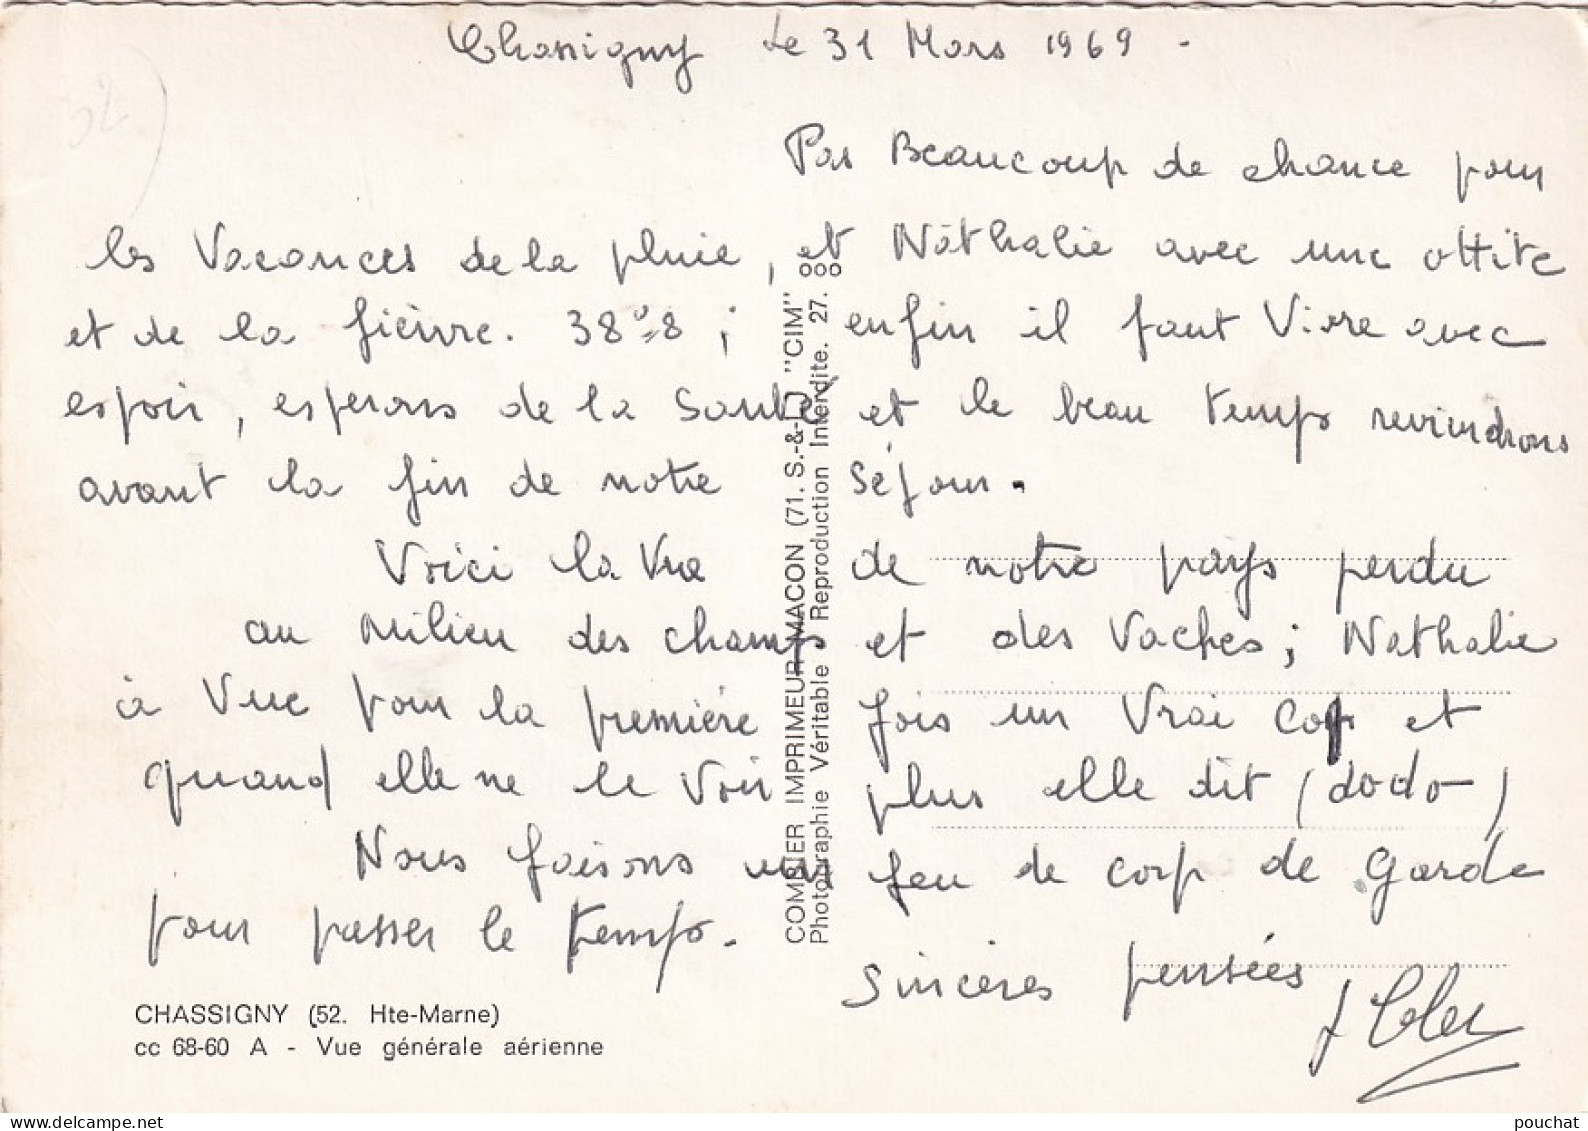 Chassigny Le 31 Mars 1969 -
Pas Beaucoup de chance pour
les Vacances de la pluie, et Nathalie avec une ottite
et de la fièvre. 38°8 ; enfin il faut Vivre avec
espoir, esperons de la Santé et le beau temps reviendrons
avant la fin de notre séjour.
Voici la Vue de notre pays perdu
au milieu des champs et des Vaches; Nathalie
à Vue pour la première fois un Vrai Coq et
quand elle ne le Voir plus elle dit (dodo)
Nous faisons un feu de corp de Garde
pour passer le temps.
Sincères pensées
CHASSIGNY (52. Hte-Marne)
cc 68-60 A - Vue générale aérienne
COMBIER IMPRIMEUR MACON (71. S.-&-L.) "CIM"
Photographie Véritable Reproduction Interdite. 27. 000
pouchat